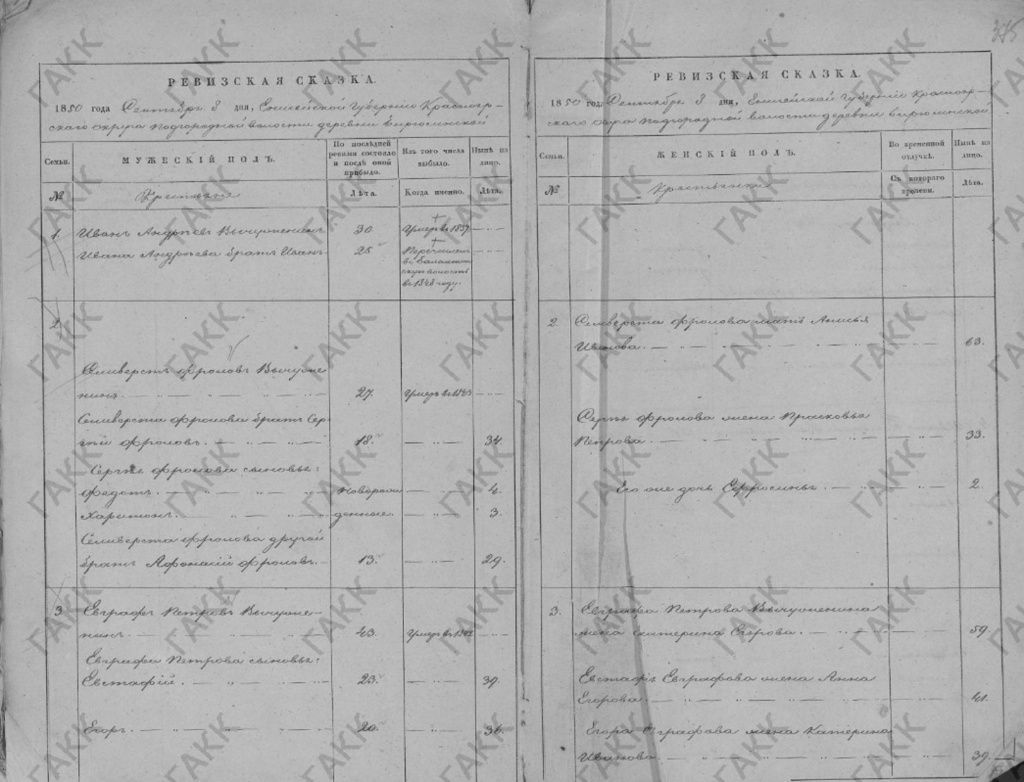 375
РЕВИЗСКАЯ СКАЗКА.
1850 года Сентября 8 дня, Енисейской Губернии Краснояр-
скаго округа Подгородной волости деревни
Семьи.
МУЖЕСКІЙ ПОЛЪ.
По послѣдней ревизіи состояло и послѣ оной прибыло.
Изъ того числа выбыло.
Нынѣ на лицо.
№
Крестьяне
Лѣта.
Когда именно.
Лѣта.
1. Иванъ Андреевъ 30 Умеръ въ 1837
Ивана Андреева братъ Иванъ 25 Перечисленъ
въ
волость
въ 1848 году.
2.
Селиверстъ Фроловъ
нинъ 27. Умеръ въ
Селиверста Фролова братъ Сер-
гей Фроловъ. 18. 34.
Сергея Фролова сыновья:
Федотъ. Новорож- 4.
Харитонъ. денные. 3.
Селиверста Фролова другой
братъ Афонасій Фроловъ. 13. 29.
3 Евграфъ Петровъ
нинъ. 43. Умеръ въ
Евграфа Петрова сыновья:
Евстафій. 23. 39.
Егоръ. 20. 36.
РЕВИЗСКАЯ СКАЗКА.
1850 года Сентября 8 дня, Енисейской Губерніи Краснояр-
скаго округа Подгородной волости деревни
Семьи.
ЖЕНСКІЙ ПОЛЪ.
Во временной отлучкѣ.
Нынѣ на лицо.
№
Крестьянки
Съ котораго времени.
Лѣта.
2 Селиверста Фролова мать Анисья
Иванова. 63.
Сергея Фролова жена Прасковья
Петрова. 33.
Его же дочь 2.
3. Евграфа Петрова
жена Катерина Егорова. 59
Евстафія Евграфова жена Анна
Егорова. 41.
Егора Евграфова жена Катерина
Иванова. 39.
ГАКК